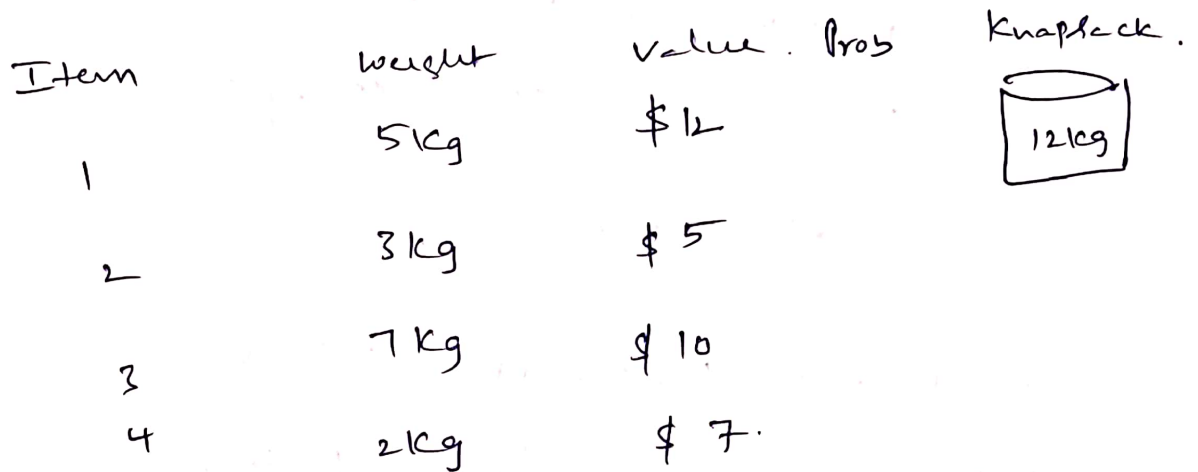 Item weight value. Prob Knapsack.
1 5kg $12 12kg
2 3kg $5
3 7kg $10
4 2kg $7.